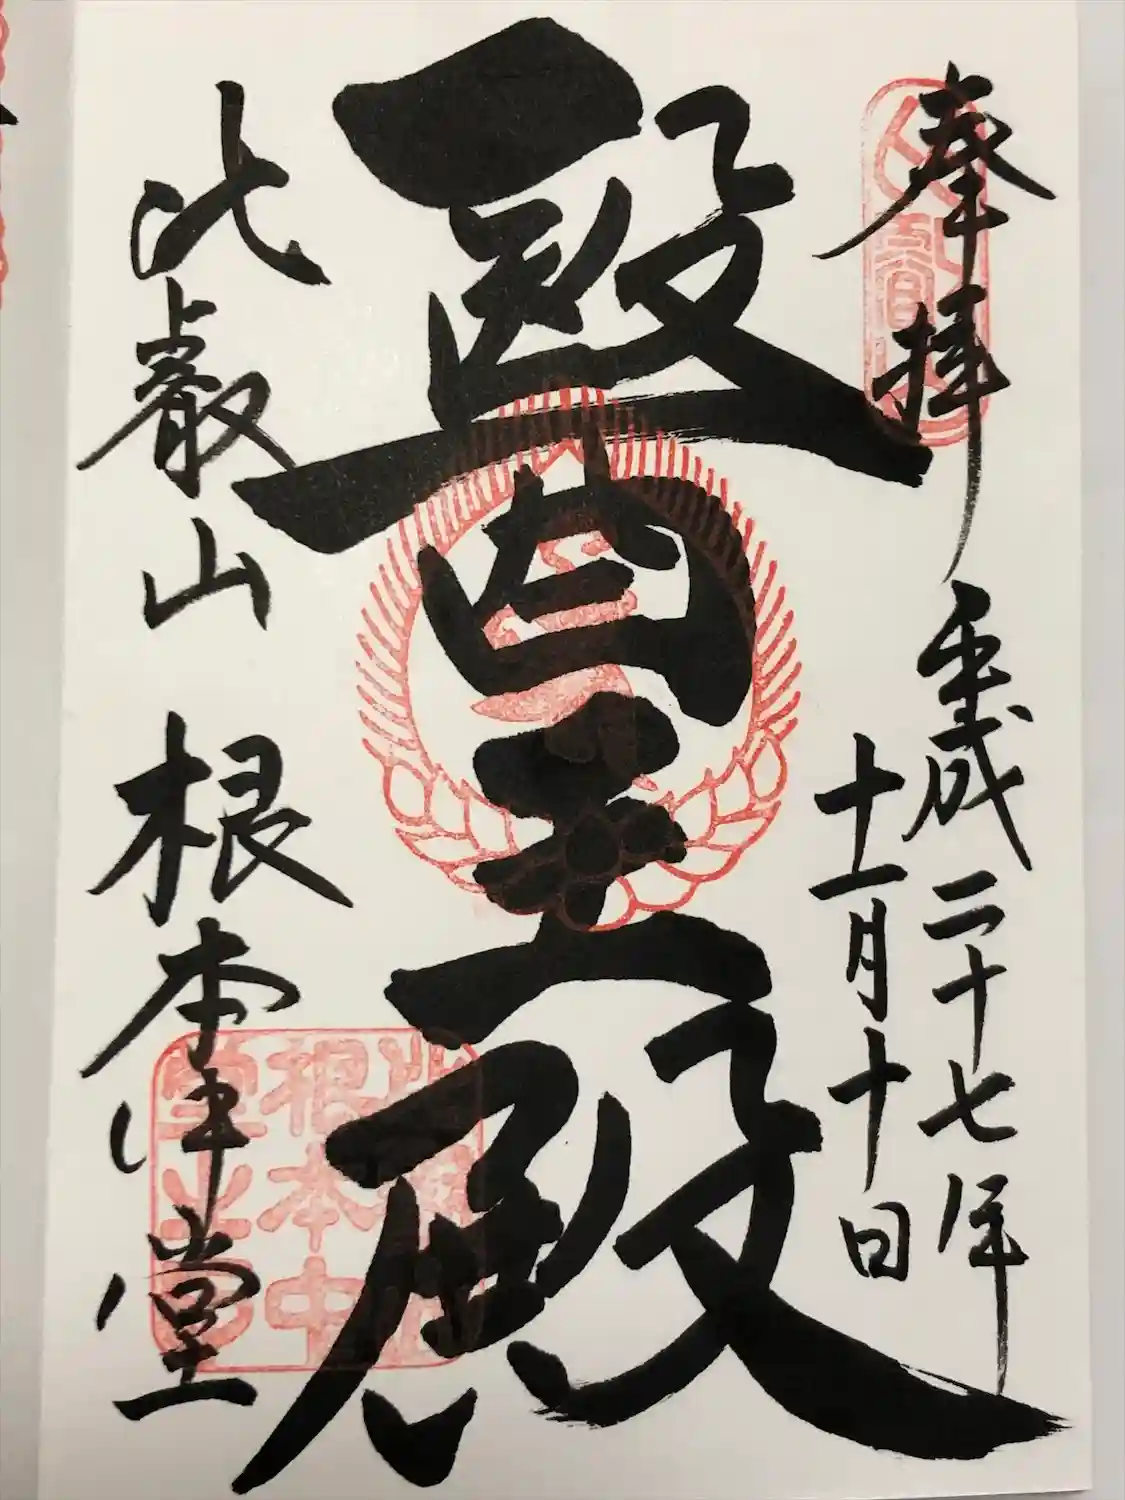 奉拝
平成二十七年
十一月十日
醫王殿
比叡山 根本中堂
根本中
堂之印